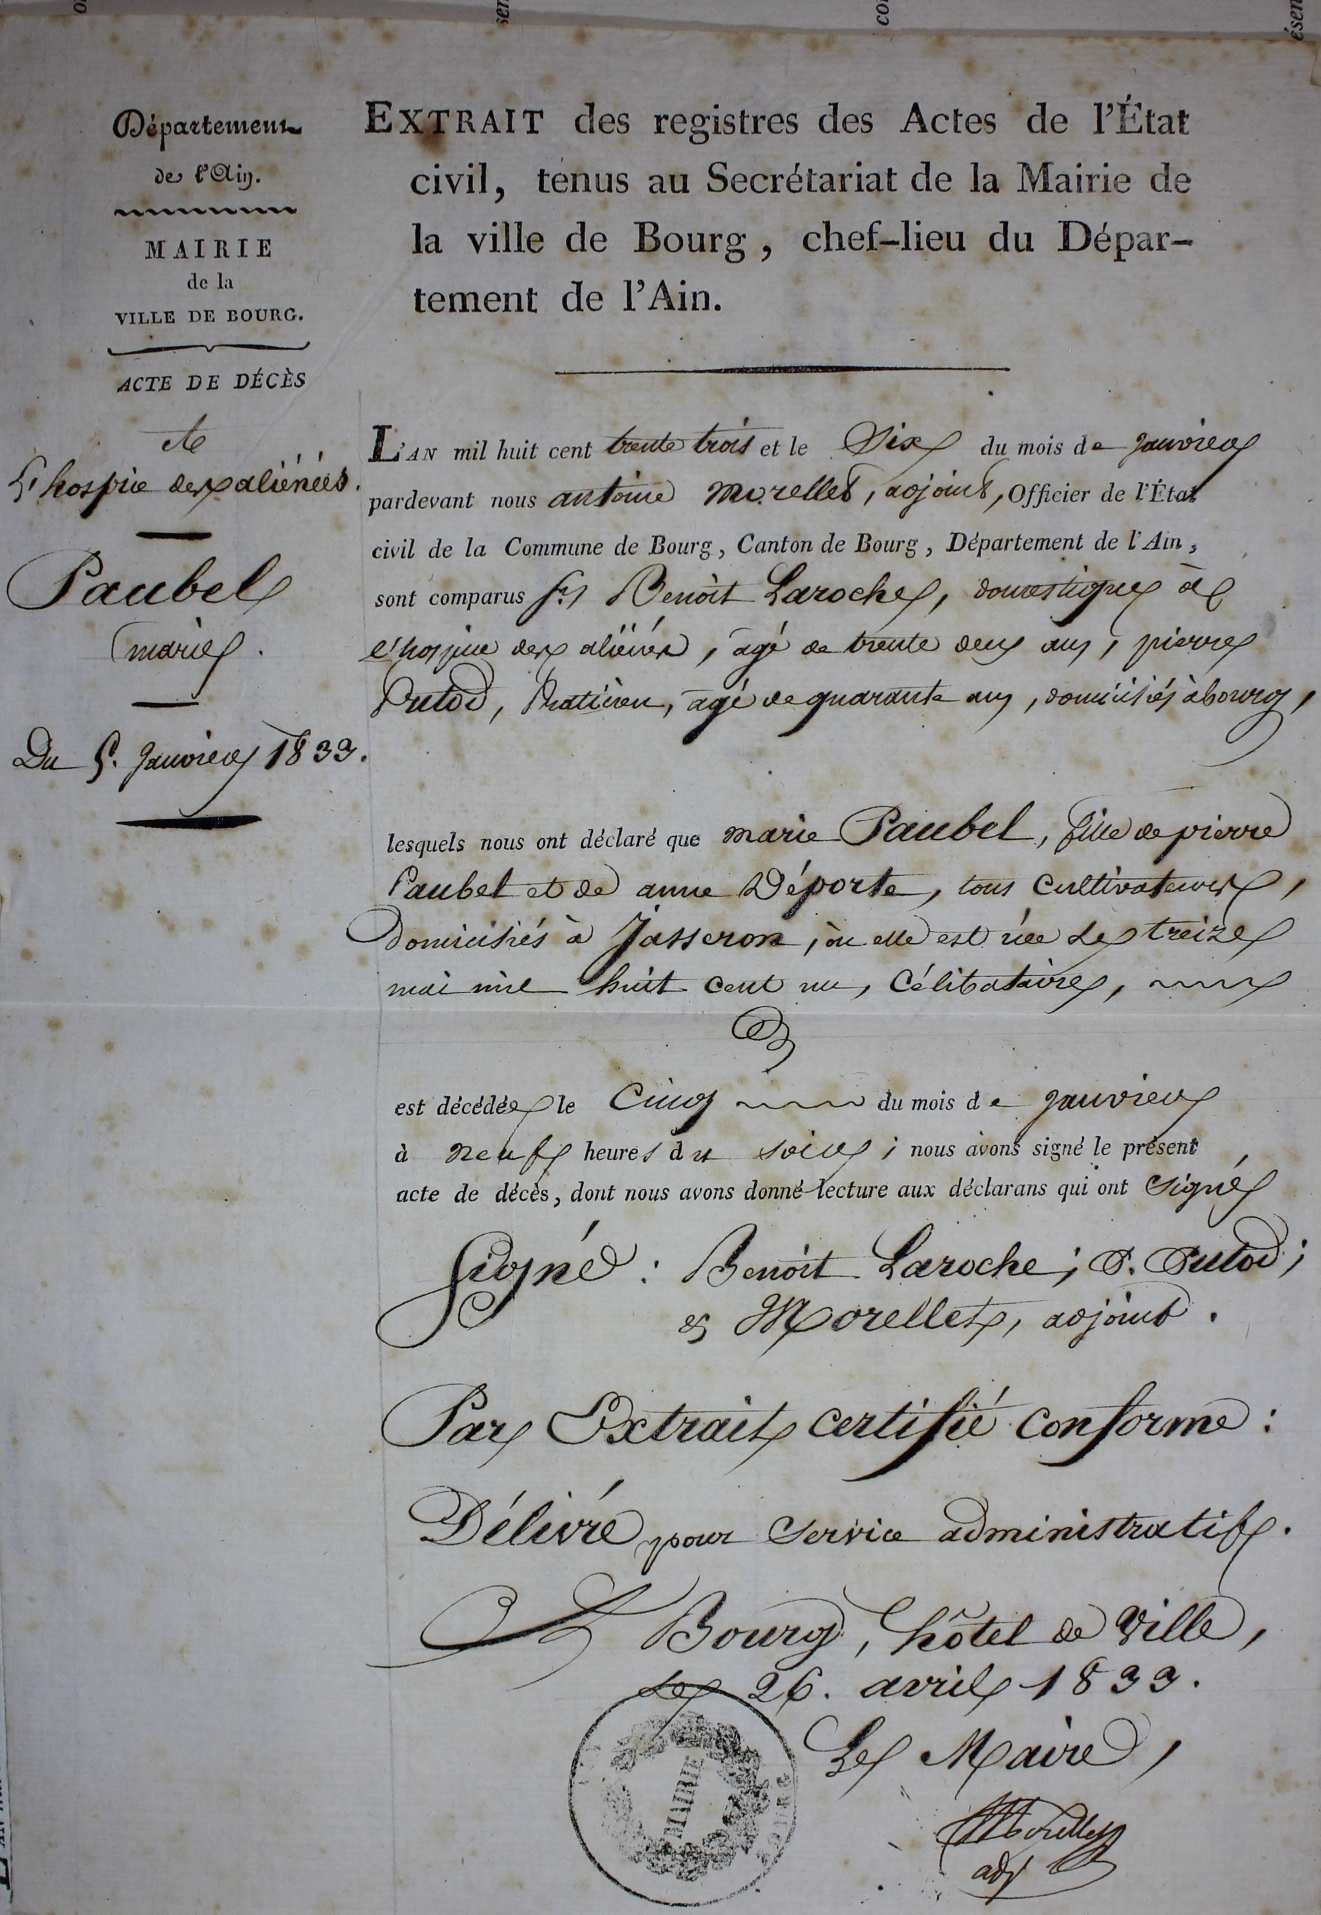 Département
de l'Ain.
MAIRIE
de la
VILLE DE BOURG.
ACTE DE DÉCÈS
de
L'hospice des aliénées.
Paubel
marie.
Du 5. Janvier 1833.
EXTRAIT des registres des Actes de l'État
civil, tenus au Secrétariat de la Mairie de
la ville de Bourg, chef-lieu du Dépar-
tement de l'Ain.
L'AN mil huit cent trente trois et le Six du mois de janvier
pardevant nous antoine Morellet, adjoint, Officier de l'État
civil de la Commune de Bourg, Canton de Bourg, Département de l'Ain,
sont comparus Srs Benoit Laroche, domestique à
l'hospice des aliénés, âgé de trente deux ans, pierre
Putod, Praticien, âgé de quarante ans, domiciliés à bourg,
lesquels nous ont déclaré que marie Paubel, fille de pierre
Paubel et de anne Déporte, tous cultivateurs,
Domiciliés à Jasseron, où elle est née le treize
mai mil huit cent un, Célibataire,
est décédée le Cinq du mois de janvier
à neuf heures du soir; nous avons signé le présent
acte de décès, dont nous avons donné lecture aux déclarans qui ont signé
Signé: Benoit Laroche; P. Putod;
& Morellet, adjoint.
Par Extrait certifié conforme:
Délivré pour service administratif.
A Bourg, hôtel de Ville,
le 26. avril 1833.
Le Maire,
Morellet
adj
MAIRIE
BOURG